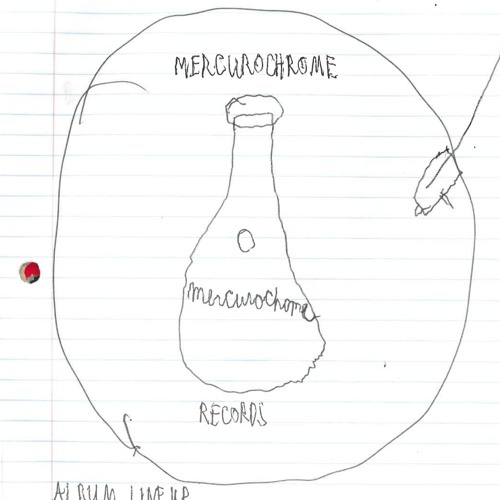 MERCUROCHROME
mercurochome
RECORDS
ALBUM LINE UP